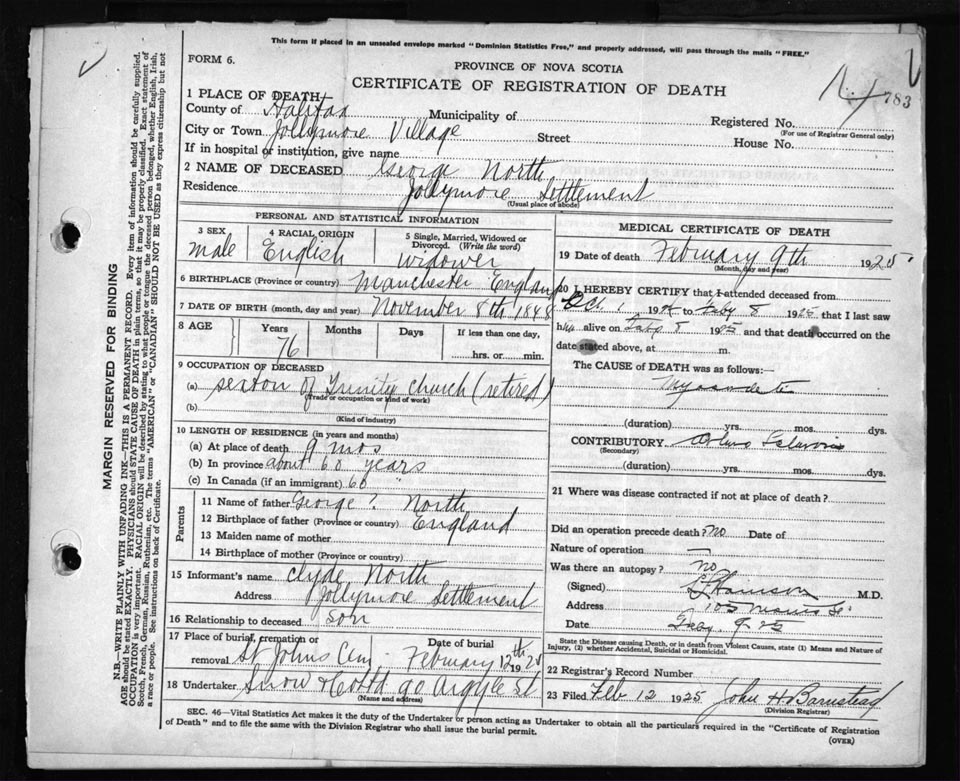 This form if placed in an unsealed envelope marked "Dominion Statistics Free," and properly addressed, will pass through the mails "FREE."
FORM 6.
PROVINCE OF NOVA SCOTIA
CERTIFICATE OF REGISTRATION OF DEATH
783
1 PLACE OF DEATH
County of Halifax Municipality of Registered No.
(For use of Registrar General only)
City or Town Jollymore Village Street House No.
If in hospital or institution, give name
2 NAME OF DECEASED George North
Residence Jollymore Settlement
(Usual place of abode)
PERSONAL AND STATISTICAL INFORMATION
3 SEX male
4 RACIAL ORIGIN English
5 Single, Married, Widowed or Divorced. (Write the word) widower
6 BIRTHPLACE (Province or country) Manchester England
7 DATE OF BIRTH (month, day and year) November 8th 1848
8 AGE Years Months Days If less than one day,
76 hrs. or min.
9 OCCUPATION OF DECEASED
(a) sexton of Trinity church (retired)
(Trade or occupation or kind of work)
(b)
(Kind of industry)
10 LENGTH OF RESIDENCE (in years and months)
(a) At place of death 9 mos
(b) In province about 60 years
(c) In Canada (if an immigrant) 60 "
Parents
11 Name of father George? North
12 Birthplace of father (Province or country) England
13 Maiden name of mother
14 Birthplace of mother (Province or country)
15 Informant's name Clyde North
Address Jollymore Settlement
16 Relationship to deceased son
17 Place of burial, cremation or removal St Johns Cem Date of burial February 12th 1925
18 Undertaker Snow & Co Ltd 90 Argyle St
(Name and address)
MEDICAL CERTIFICATE OF DEATH
19 Date of death February 9th 1925
(Month, day and year)
20 I HEREBY CERTIFY that I attended deceased from
Oct. 1 1924 to Feby 8 1925 that I last saw
him alive on Feby 8 1925 and that death occurred on the
date stated above, at m.
The CAUSE of DEATH was as follows:
Myocarditis
(duration) yrs. mos. dys.
CONTRIBUTORY Arterio Sclerosis
(Secondary)
(duration) yrs. mos. dys.
21 Where was disease contracted if not at place of death?
Did an operation precede death? No Date of
Nature of operation —
Was there an autopsy? No
(Signed) M.D.
Address 105 St
Date Feby. 9. 25
State the Disease causing Death, or in death from Violent Causes, state (1) Means and Nature of
Injury, (2) whether Accidental, Suicidal or Homicidal.
22 Registrar's Record Number
23 Filed Feb 12 1925 John H Barnstead
(Division Registrar)
SEC. 46—Vital Statistics Act makes it the duty of the Undertaker or person acting as Undertaker to obtain all the particulars required in the "Certificate of Registration
of Death" and to file the same with the Division Registrar who shall issue the burial permit.
(OVER)
MARGIN RESERVED FOR BINDING
N.B.—WRITE PLAINLY WITH UNFADING INK—THIS IS A PERMANENT RECORD. Every item of information should be carefully supplied.
AGE should be stated EXACTLY. PHYSICIANS should STATE CAUSE OF DEATH in plain terms, so that it may be properly classified. Exact statement of
OCCUPATION is very important. RACIAL ORIGIN will be described by stating to what people or tongue the deceased person belonged, whether English, Irish,
Scotch, French, German, Russian, Ruthenian, etc. The terms "AMERICAN" or "CANADIAN" SHOULD NOT BE USED as they express citizenship but not
a race or people. See instructions on back of Certificate.